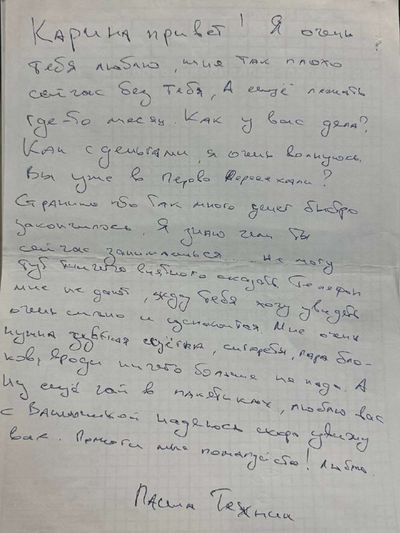 Карина привет! Я очень
тебя люблю, мне так плохо
сейчас без тебя, А ещё лежать
где-то месяц. Как у вас дела?
Как с деньгами, я очень волнуюсь.
Вы уже в Перово переехали?
Странно что так много денег быстро
закончилось. Я знаю чем ты
сейчас занимаешься. Не могу
тут ничего внятного сказать телефон
мне не дают, жду тебя хочу увидеть
очень сильно и успокоится. Мне очень
нужна зубная щётка, сигареты, пара бло-
ков, вроди ничего больше не надо. А
ну ещё чай в пакетиках, люблю вас
с Ванишкой надеюсь скоро увижу
вас. Помоги мне пожалуйсто! Люблю.
Паша Техник